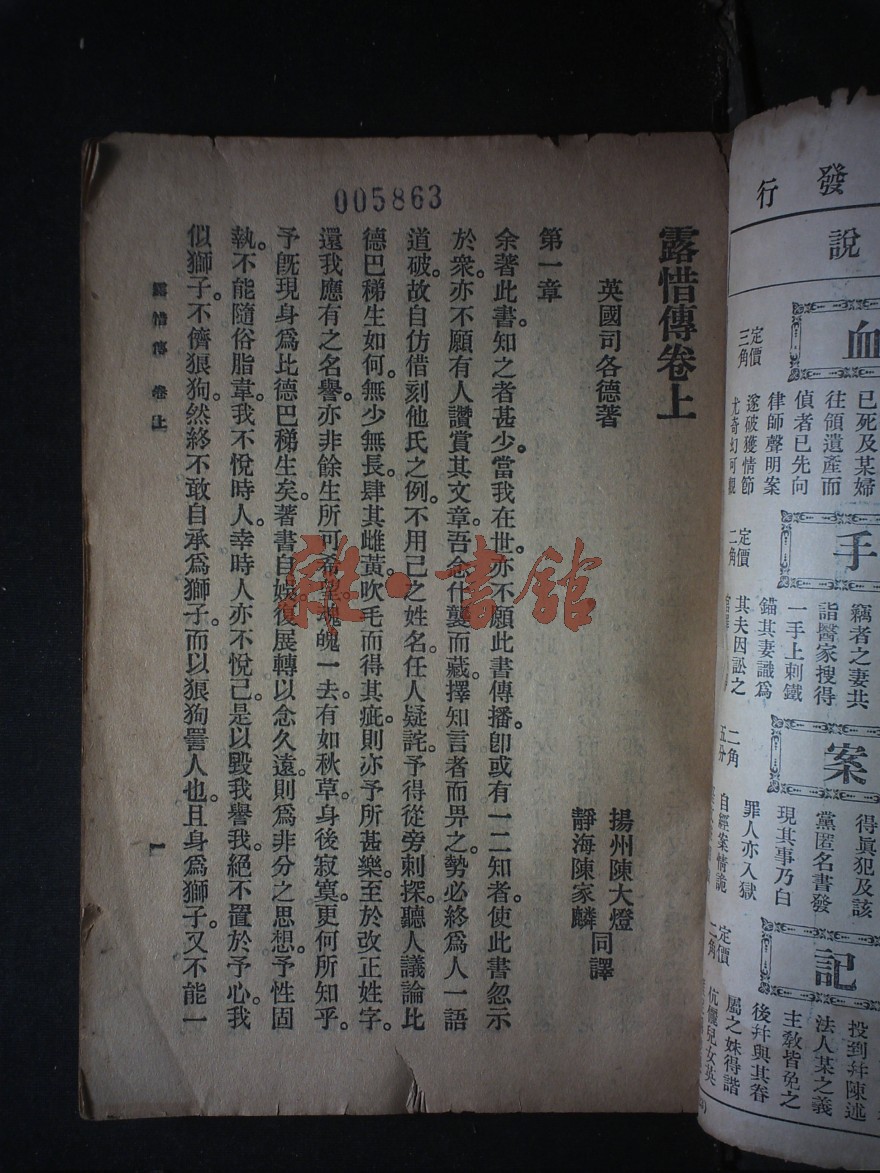 005863
露惜傳卷上
英國司各德著
揚州陳大燈
靜海陳家麟
同譯
第一章
余著此書。知之者甚少。當我在世。亦不願此書傳播。卽或有一二知者。使此書忽示
於衆。亦不願有人讚賞其文章。吾念什襲而藏。擇知言者而畀之。勢必終爲人一語
道破。故自仿借刻他氏之例。不用己之姓名。任人疑詫。予得從旁刺探。聽人議論比
德巴稊生如何。無少無長。肆其雌黃。吹毛而得其疵。則亦予所甚樂。至於改正姓字。
還我應有之名譽。亦非餘生所可希望。魂魄一去。有如秋草。身後寂寞。更何所知乎。
予旣現身爲比德巴稊生矣。著書自娛。復展轉以念久遠。則爲非分之思想。予性固
執。不能隨俗脂韋。我不悅時人。幸時人亦不悅己。是以毀我譽我。絕不置於予心。我
似獅子。不儕狼狗。然終不敢自承爲獅子。而以狼狗詈人也。且身爲獅子。又不能一
露惜傳 卷上
一
雜·書館
發行
說
血
定價
三角
已死及某婦
往領遺產而
偵者已先向
律師聲明案
遂破獲情節
尤奇幻可觀
手
定價
二角
竊者之妻共
詣醫家搜得
一手上刺鐵
錨其妻識爲
其夫因訟之
案
二角
五分
得眞犯及該
黨匿名書發
現其事乃白
罪人亦入獄
自經案情詭
記
定價
二角
投到幷陳述
法人某之義
主教皆免之
後幷與其眷
屬之妹得諧
伉儷兒女英